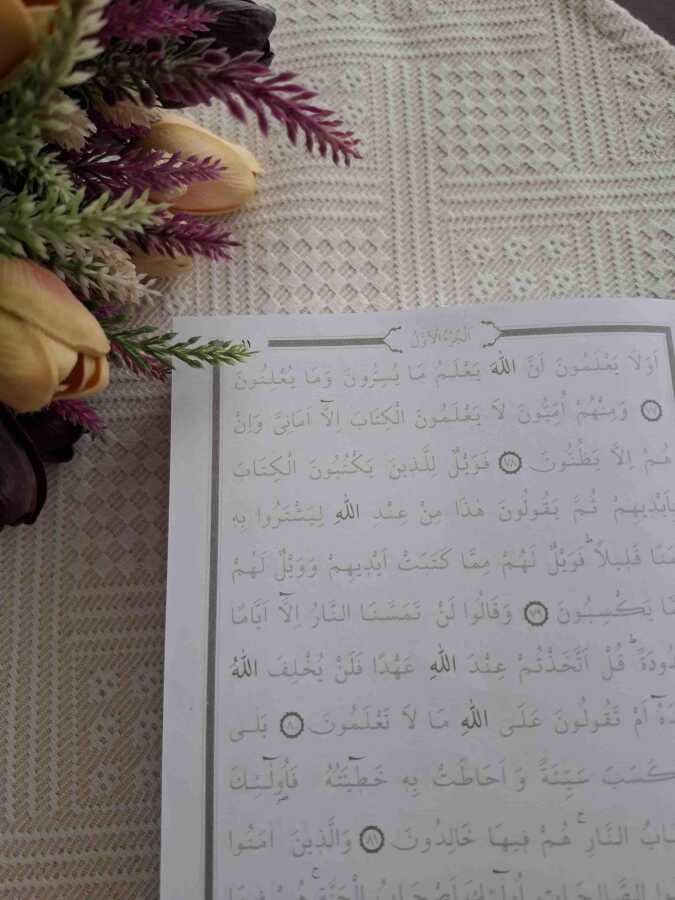 اَلْجُزْءُ الْاَوَّلُ
اَوَلَا يَعْلَمُونَ اَنَّ اللّٰهَ يَعْلَمُ مَا يُسِرُّونَ وَمَا يُعْلِنُونَ
﴿٧٧﴾ وَمِنْهُمْ اُمِّيُّونَ لَا يَعْلَمُونَ الْكِتَابَ اِلَّٓا اَمَانِىَّ وَاِنْ
هُمْ اِلَّا يَظُنُّونَ ﴿٧٨﴾ فَوَيْلٌ لِلَّذِينَ يَكْتُبُونَ الْكِتَابَ
بِاَيْدِيهِمْ ثُمَّ يَقُولُونَ هٰذَا مِنْ عِنْدِ اللّٰهِ لِيَشْتَرُوا بِهِ
قَلِيلًاۜ فَوَيْلٌ لَهُمْ مِمَّا كَتَبَتْ اَيْدِيهِمْ وَوَيْلٌ لَهُمْ
يَكْسِبُونَ ﴿٧٩﴾ وَقَالُوا لَنْ تَمَسَّنَا النَّارُ اِلَّٓا اَيَّامًا
قُلْ اَتَّخَذْتُمْ عِنْدَ اللّٰهِ عَهْدًا فَلَنْ يُخْلِفَ اللّٰهُ
اَمْ تَقُولُونَ عَلَى اللّٰهِ مَا لَا تَعْلَمُونَ ﴿٨٠﴾ بَلٰى
كَسَبَ سَيِّئَةً وَاَحَاطَتْ بِهِ خَطِٓيـَٔتُهُ فَاُو۬لٰٓئِكَ
النَّارِۚ هُمْ فِيهَا خَالِدُونَ ﴿٨١﴾ وَالَّذِينَ اٰمَنُوا
الصَّالِحَاتِ اُو۬لٰٓئِكَ اَصْحَابُ الْجَنَّةِۚ هُمْ فِيهَا